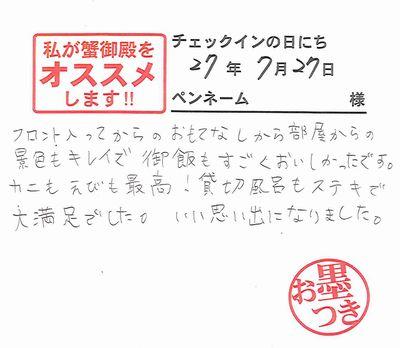 私が蟹御殿を
オススメ
します!!
チェックインの日にち
27年 7月27日
ペンネーム 様
フロント入ってからのおもてなしから部屋からの
景色もキレイで御飯もすごくおいしかったです。
カニもえびも最高!貸切風呂もステキで
大満足でした。いい思い出になりました。
お墨つき